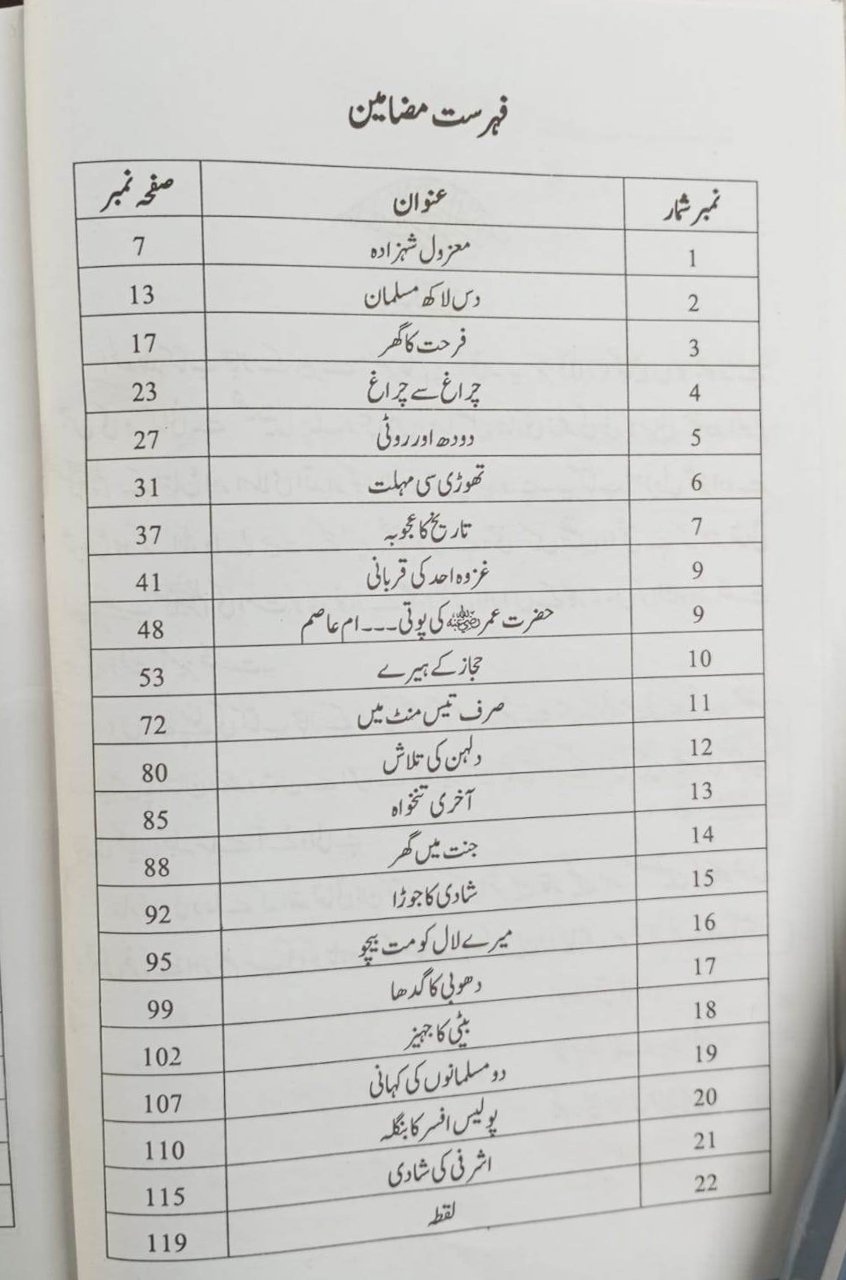 فہرست مضامین
نمبر شمار عنوان صفحہ نمبر
1 معزول شہزادہ 7
2 دس لاکھ مسلمان 13
3 فرحت کا گھر 17
4 چراغ سے چراغ 23
5 دودھ اور روٹی 27
6 تھوڑی سی مہلت 31
7 تاریخ کا عجوبہ 37
9 غزوہ احد کی قربانی 41
9 حضرت عمر کی پوتی۔۔۔ام عاصم 48
10 حجاز کے ہیرے 53
11 صرف تیس منٹ میں 72
12 دلہن کی تلاش 80
13 آخری تنخواہ 85
14 جنت میں گھر 88
15 شادی کا جوڑا 92
16 میرے لال کو مت بیچو 95
17 دھوبی کا گدھا 99
18 بیٹی کا جہیز 102
19 دو مسلمانوں کی کہانی 107
20 پولیس افسر کا بنگلہ 110
21 اشرفی کی شادی 115
22 لقطہ 119